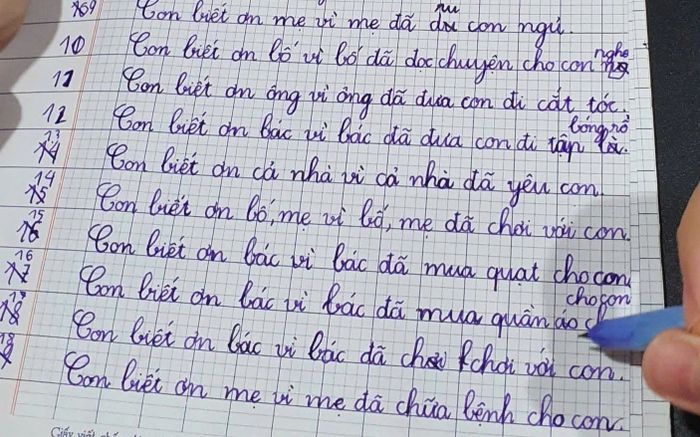 9 Con biết ơn mẹ vì mẹ đã ru con ngủ.
10 Con biết ơn bố vì bố đã dọc chuyện cho con nghe
11 Con biết ơn ông vì ông đã đưa con đi cắt tóc.
12 Con biết ơn bác vì bác đã đưa con đi tập bóng rổ
13 Con biết ơn cả nhà vì cả nhà đã yêu con.
14 Con biết ơn bố, mẹ vì bố, mẹ đã chơi với con.
15 Con biết ơn bác vì bác đã mua quạt cho con
16 Con biết ơn bác vì bác đã mua quần áo cho con
17 Con biết ơn bác vì bác đã chơi với con.
18 Con biết ơn mẹ vì mẹ đã chữa bệnh cho con.
Giấy viết